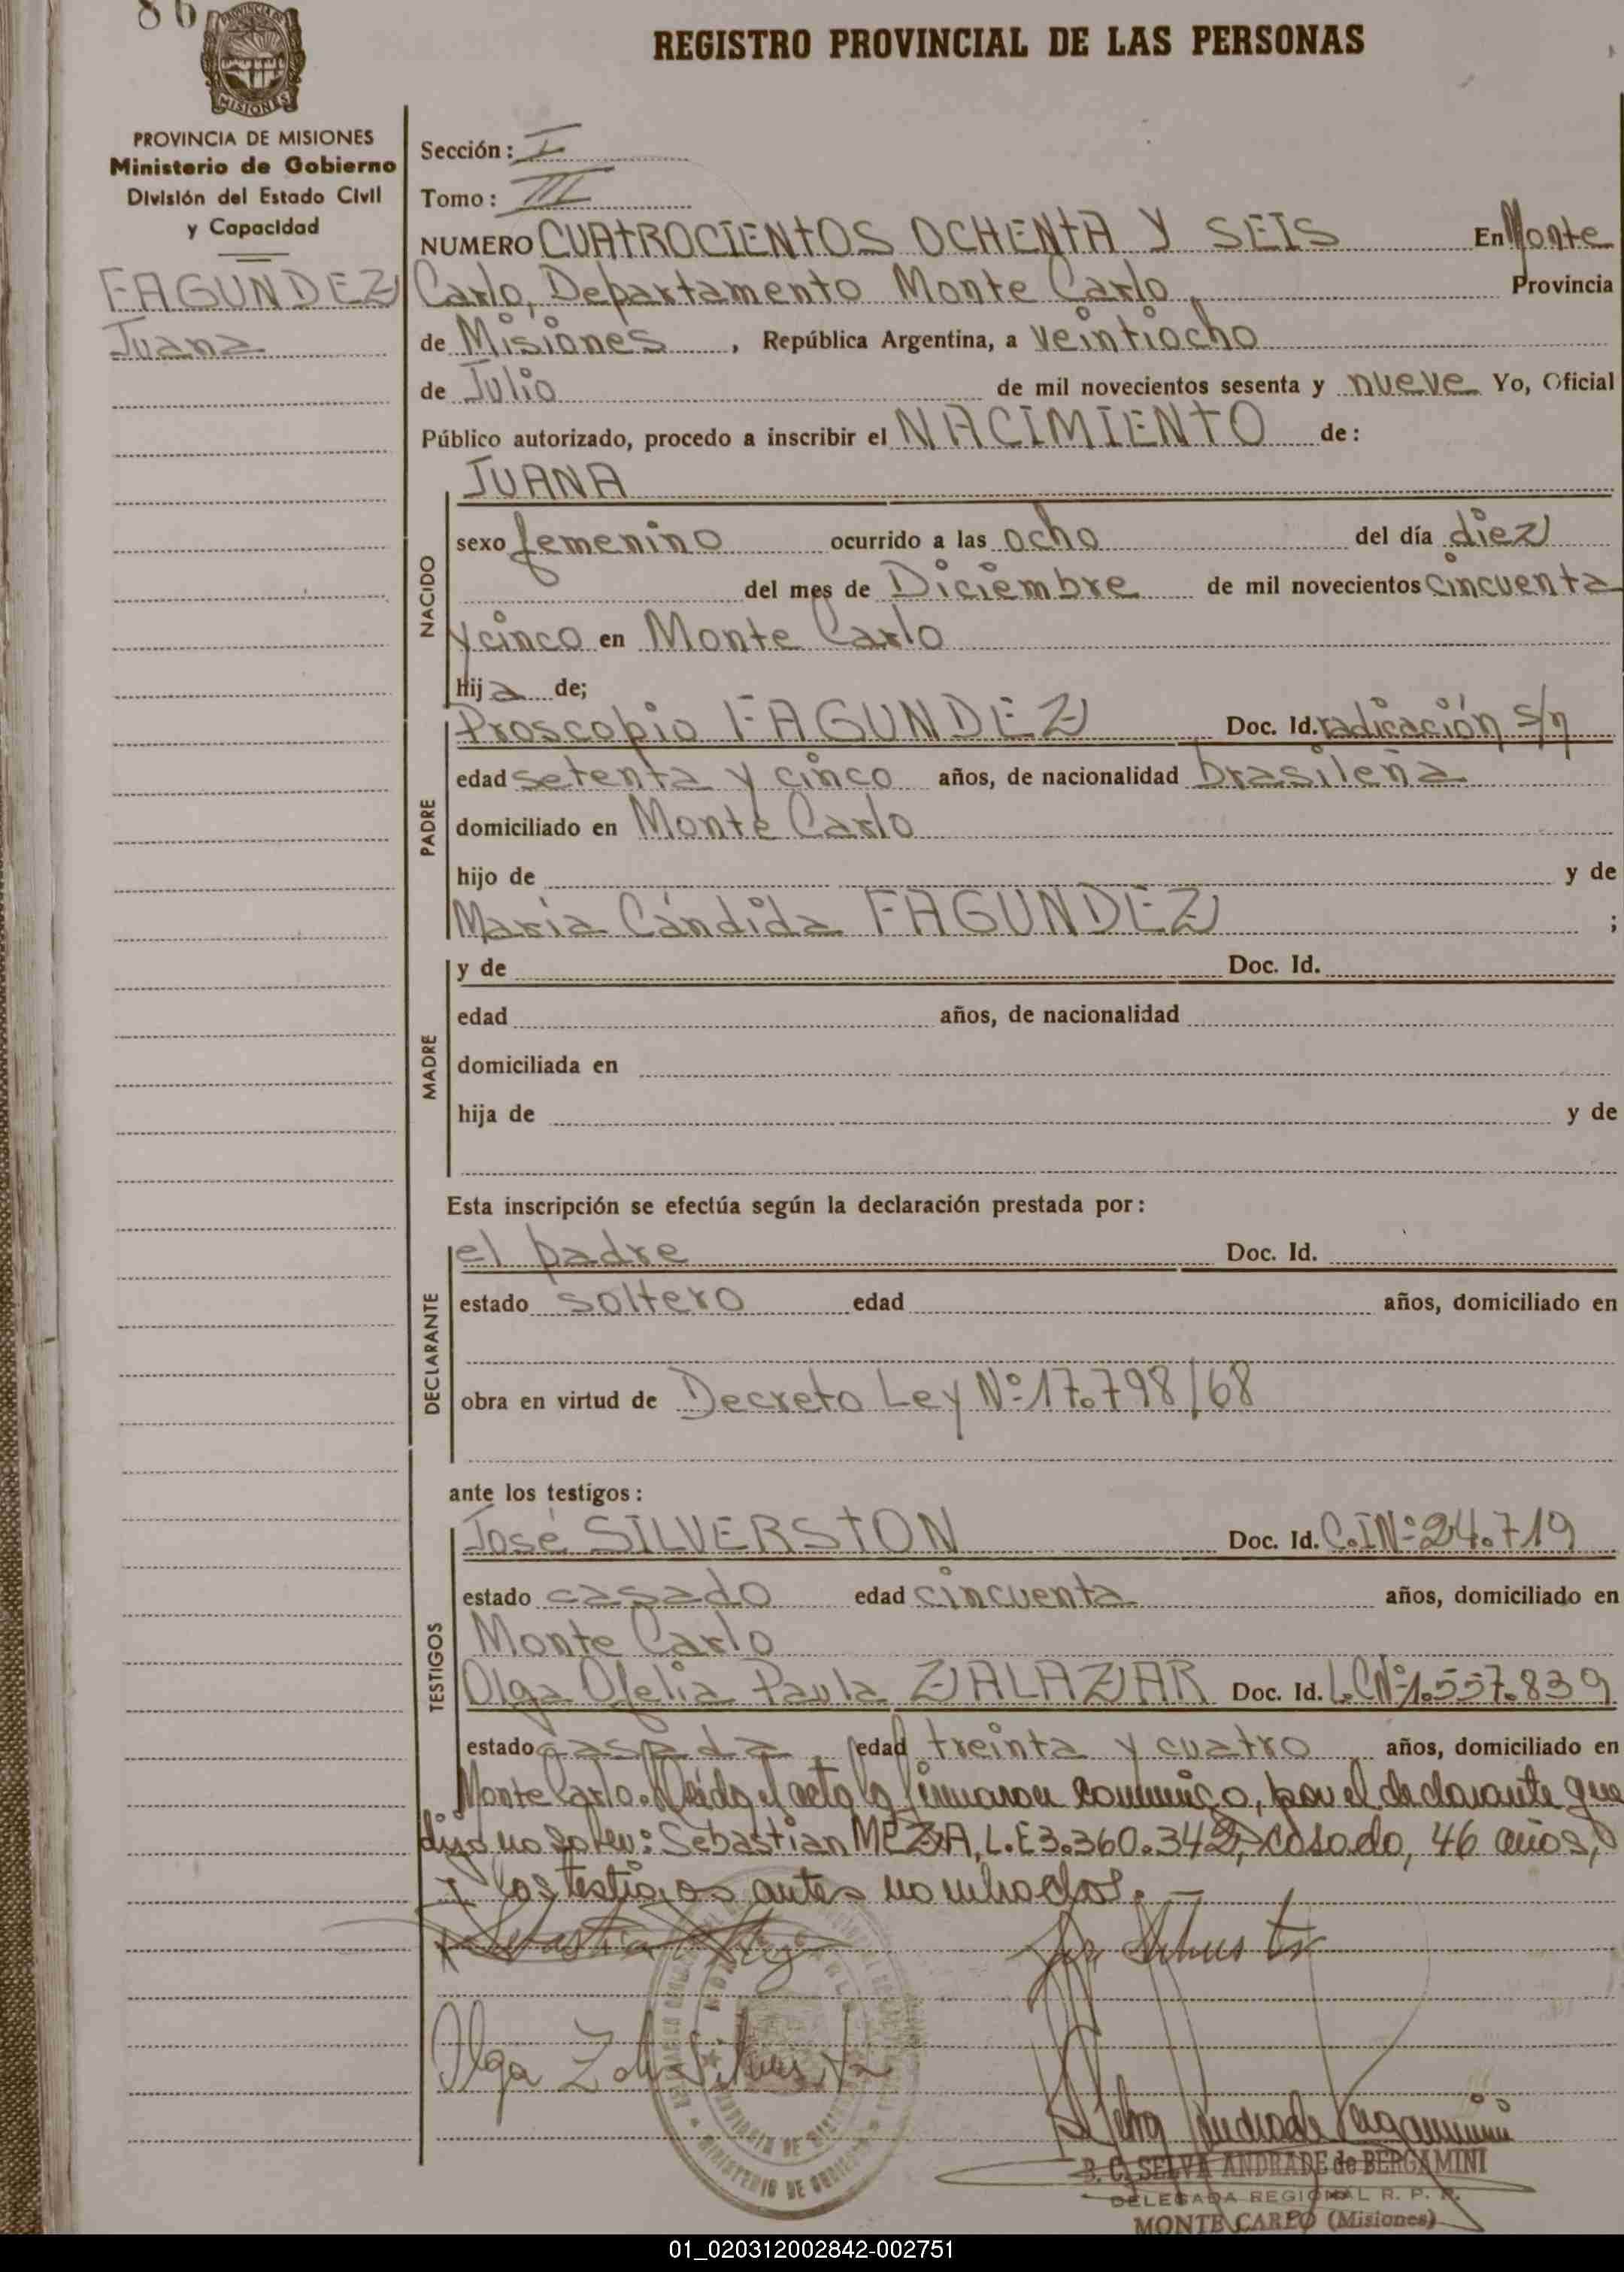 86
REGISTRO PROVINCIAL DE LAS PERSONAS
PROVINCIA DE MISIONES
MISIONES
PROVINCIA DE MISIONES
Ministerio de Gobierno
División del Estado Civil
y Capacidad
FAGUNDEZ
Juana
Sección: I
Tomo: III
NUMERO CUATROCIENTOS OCHENTA Y SEIS En Monte
Carlo, Departamento Monte Carlo, Provincia
de Misiones, República Argentina, a veintiocho
de Julio de mil novecientos sesenta y nueve Yo, Oficial
Público autorizado, procedo a inscribir el NACIMIENTO de:
NACIDO
JUANA
sexo femenino ocurrido a las ocho del día diez
del mes de Diciembre de mil novecientos cincuenta
y cinco en Monte Carlo
Hija de;
PADRE
Proscopio FAGUNDEZ Doc. Id. radicación s/n
edad setenta y cinco años, de nacionalidad brasileña
domiciliado en Monte Carlo
hijo de y de
María Cándida FAGUNDEZ ;
MADRE
y de Doc. Id.
edad años, de nacionalidad
domiciliada en
hija de y de
Esta inscripción se efectúa según la declaración prestada por:
DECLARANTE
el padre Doc. Id.
estado soltero edad años, domiciliado en
obra en virtud de Decreto Ley Nº 17.798/68
ante los testigos:
TESTIGOS
José SILVERSTON Doc. Id. C.I Nº 24.719
estado casado edad cincuenta años, domiciliado en
Monte Carlo
Olga Ofelia Paula ZALAZAR Doc. Id. L.C Nº 1.557.839
estado casada, edad treinta y cuatro años, domiciliado en
Monte Carlo. Leída el acta la firmaron conmigo, por el declarante que
dijo no saber: Sebastian MEZA, L.E 3.360.342, casado, 46 años,
y los testigos antes nombrados. —
MINISTERIO DE GOBIERNO
PROVINCIA DE MISIONES
B. C. SELVA ANDRADE de BERGAMINI
DELEGADA REGIONAL R. P. P.
MONTE CARLO (Misiones)
01_020312002842-002751